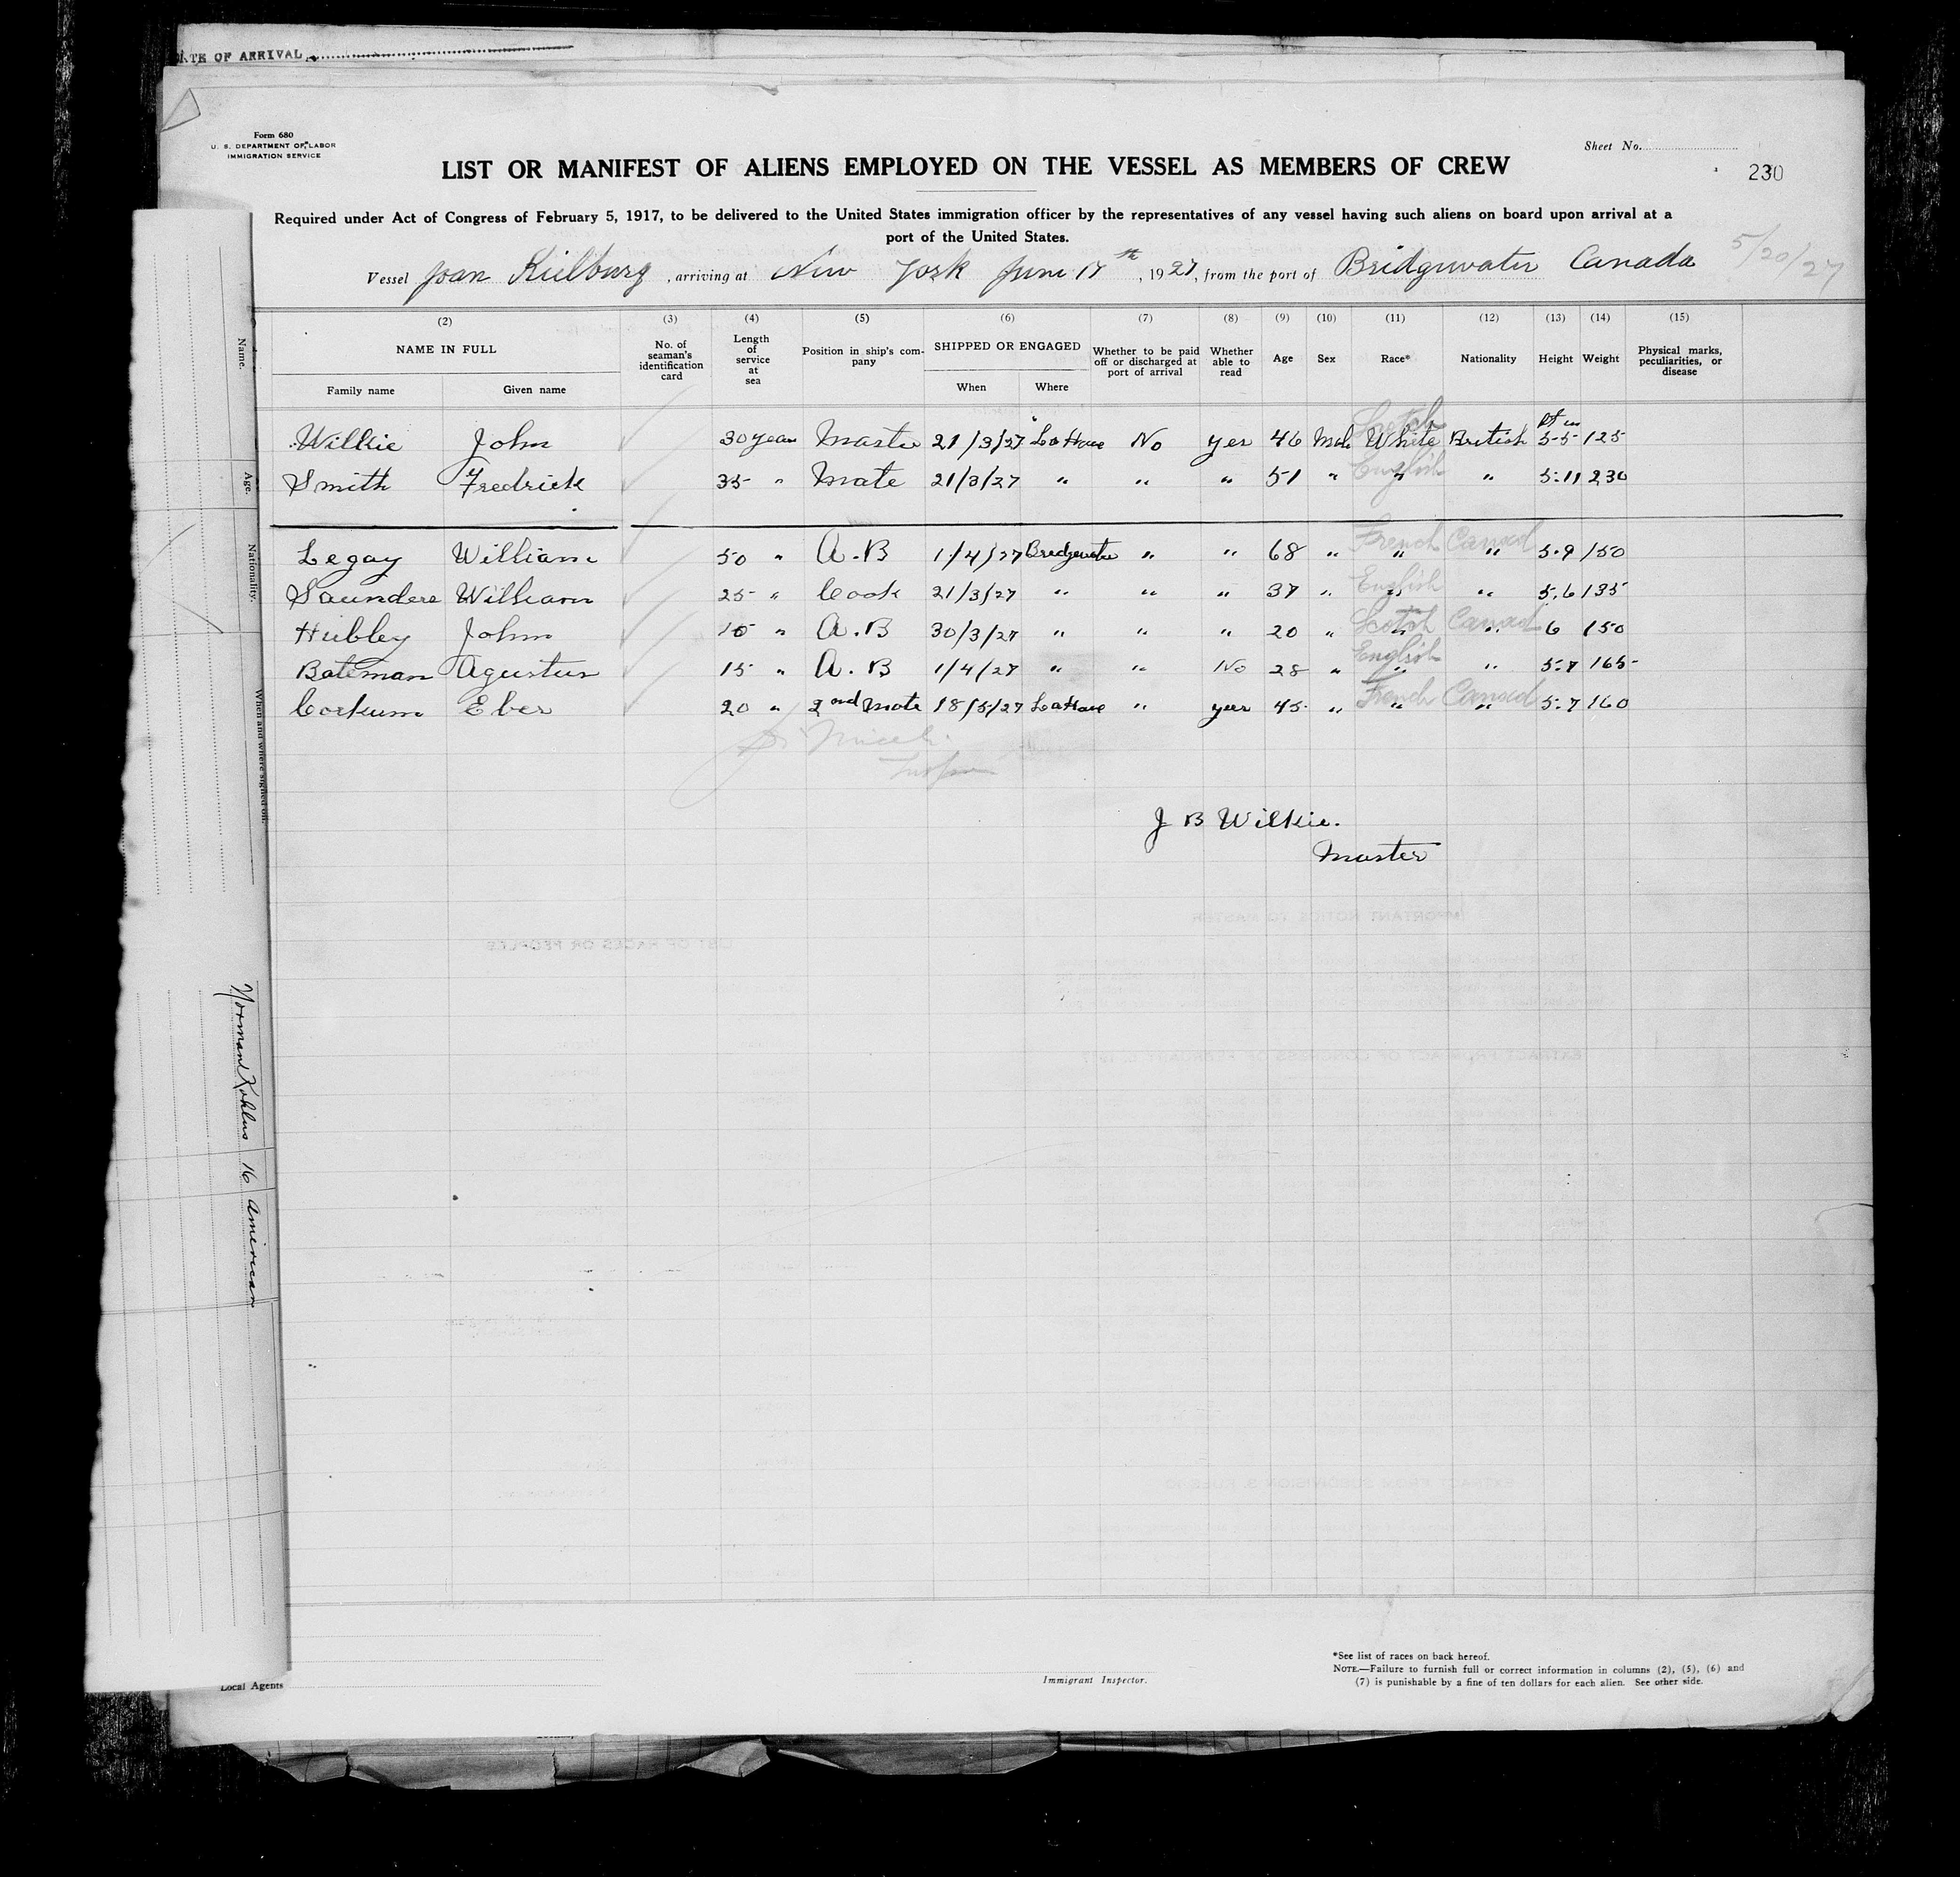 DATE OF ARRIVAL
Form 680
U. S. DEPARTMENT OF LABOR
IMMIGRATION SERVICE
Sheet No.
230
LIST OR MANIFEST OF ALIENS EMPLOYED ON THE VESSEL AS MEMBERS OF CREW
Required under Act of Congress of February 5, 1917, to be delivered to the United States immigration officer by the representatives of any vessel having such aliens on board upon arrival at a
port of the United States.
5/20/27
Vessel Joan Kielburg, arriving at New York June 17th, 1927, from the port of Bridgewater Canada
(2) (3) (4) (5) (6) (7) (8) (9) (10) (11) (12) (13) (14) (15)
NAME IN FULL No. of seaman's identification card Length of service at sea Position in ship's company SHIPPED OR ENGAGED Whether to be paid off or discharged at port of arrival Whether able to read Age Sex Race* Nationality Height Weight Physical marks, peculiarities, or disease
Family name Given name When Where
Scotch ft in
Wilkie John 30 years Master 21/3/27 LaHave No yes 46 Male White British 5-5 125
Smith Fredrick 35 " Mate 21/3/27 " " " 51 " English " " 5.11 230
Legay William 50 " A.B 1/4/27 Bridgewater " " 68 " French " Canad " 5.9 150
Saunders William 25 " Cook 21/3/27 " " " 37 " English " " 5.6 135
Hubley John 10 " A.B 30/3/27 " " " 20 " Scotch " Canad " 6 150
Bateman Agustus 15 " A.B 1/4/27 " " No 28 " English " " 5.7 165
Corkum Eber 20 " 2nd Mate 18/5/27 LaHave " yes 45 " French " Canad " 5.7 160
J B Wilkie.
Master
Name.
Age.
Nationality.
When and where signed on.
Norman Kohlus 16 American
LIST OF RACES OR PEOPLES
IMPORTANT NOTICE TO MASTER
EXTRACT FROM ACT OF CONGRESS OF FEBRUARY 5, 1917
EXTRACT FROM SUBDIVISION 3, RULE 10
Local Agents
Immigrant Inspector.
*See list of races on back hereof.
NOTE.—Failure to furnish full or correct information in columns (2), (5), (6) and
(7) is punishable by a fine of ten dollars for each alien. See other side.